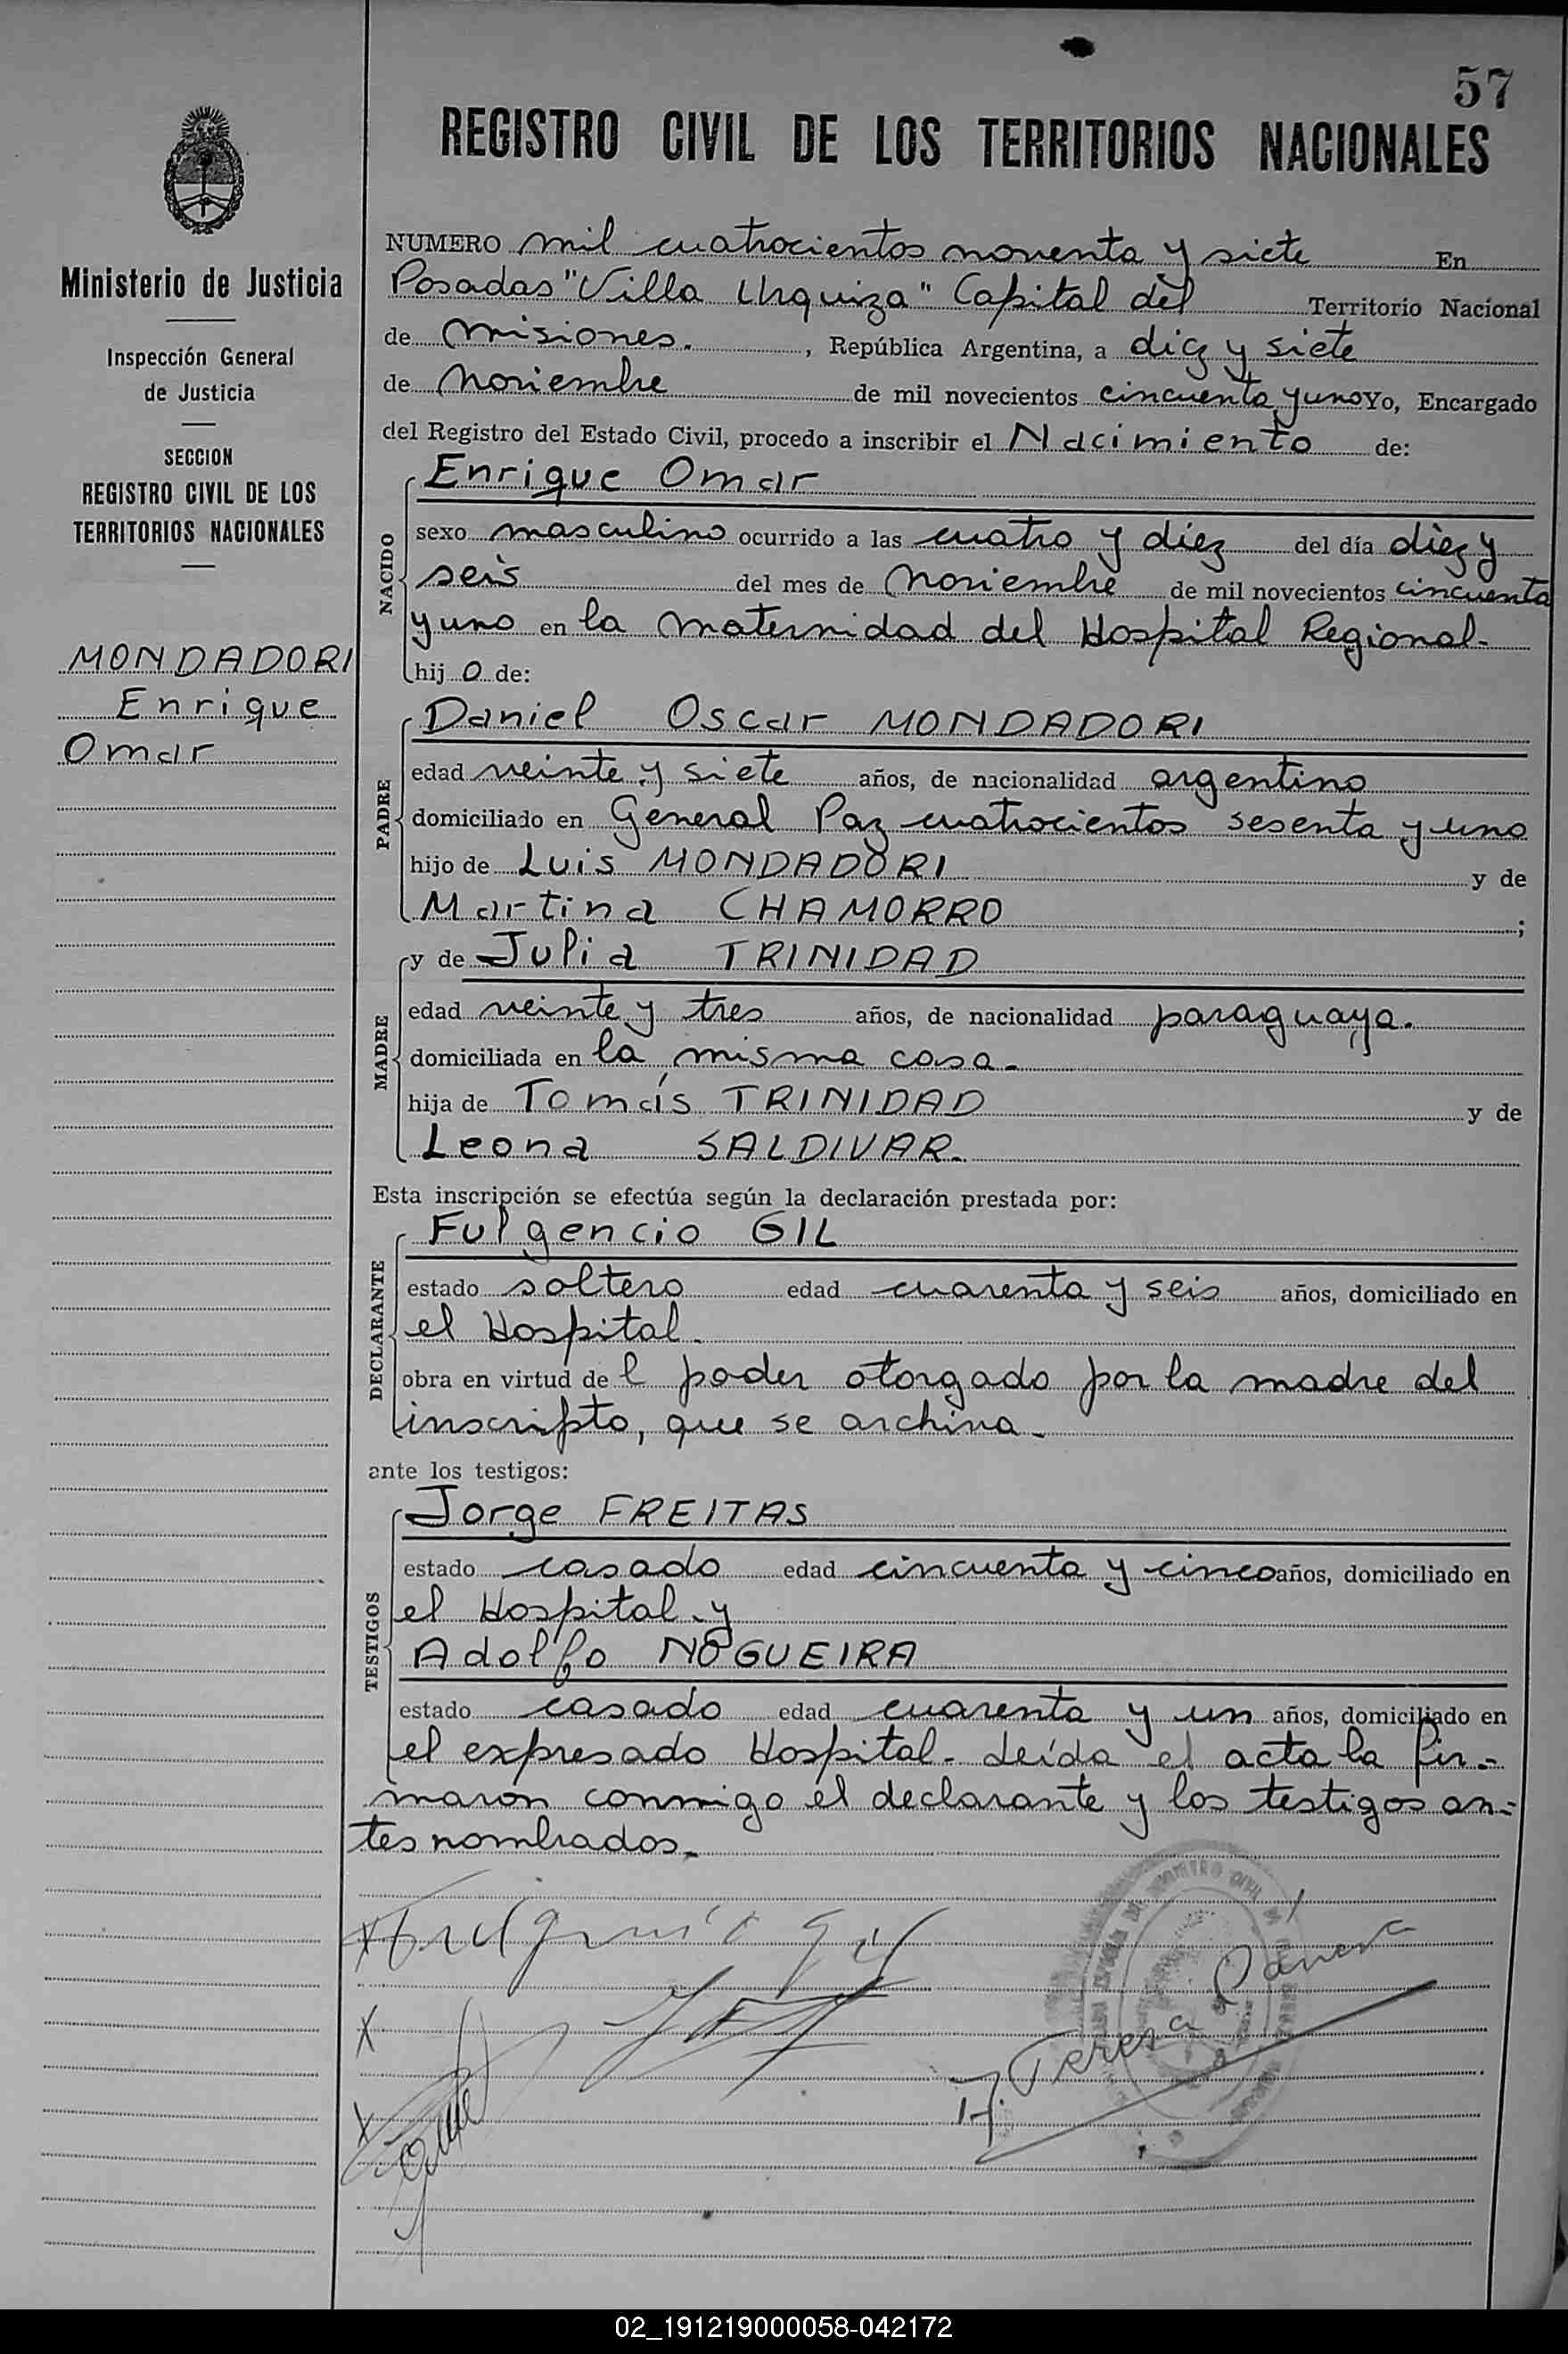 57
REGISTRO CIVIL DE LOS TERRITORIOS NACIONALES
Ministerio de Justicia
Inspección General
de Justicia
SECCION
REGISTRO CIVIL DE LOS
TERRITORIOS NACIONALES
MONDADORI
Enrique
Omar
NUMERO mil cuatrocientos noventa y siete En
Posadas "Villa Urquiza" Capital del Territorio Nacional
de Misiones. , República Argentina, a diez y siete
de Noviembre de mil novecientos cincuenta y uno Yo, Encargado
del Registro del Estado Civil, procedo a inscribir el Nacimiento de:
NACIDO
Enrique Omar
sexo masculino ocurrido a las cuatro y diez del día diez y
seis del mes de Noviembre de mil novecientos cincuenta
y uno en la Maternidad del Hospital Regional.
hij o de:
PADRE
Daniel Oscar MONDADORI
edad veinte y siete años, de nacionalidad argentino
domiciliado en General Paz cuatrocientos sesenta y uno
hijo de Luis MONDADORI y de
Martina CHAMORRO ;
MADRE
y de Julia TRINIDAD
edad veinte y tres años, de nacionalidad paraguaya.
domiciliada en la misma casa.
hija de Tomás TRINIDAD y de
Leona SALDIVAR.
Esta inscripción se efectúa según la declaración prestada por:
DECLARANTE
Fulgencio GIL
estado soltero edad cuarenta y seis años, domiciliado en
el Hospital.
obra en virtud de l poder otorgado por la madre del
inscripto, que se archiva.
ante los testigos:
TESTIGOS
Jorge FREITAS
estado casado edad cincuenta y cinco años, domiciliado en
el Hospital y
Adolfo NOGUEIRA
estado casado edad cuarenta y un años, domiciliado en
el expresado Hospital. Leída el acta la fir-
maron conmigo el declarante y los testigos an-
tes nombrados.
Fulgencio Gil
Teresa
02_191219000058-042172